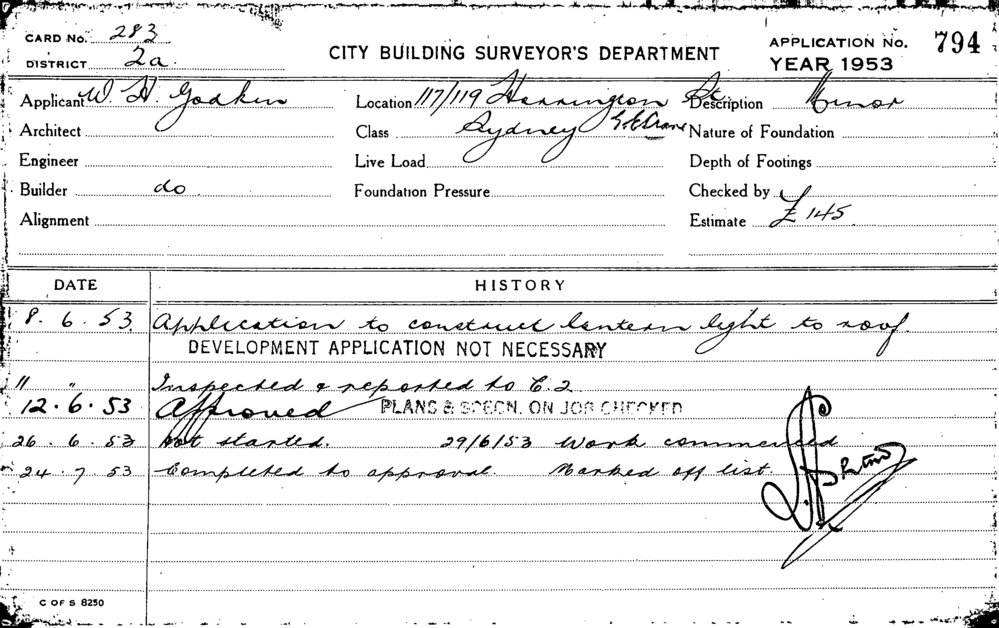 CARD No. 283
DISTRICT 2a.
CITY BUILDING SURVEYOR'S DEPARTMENT
APPLICATION No. 794
YEAR 1953
Applicant W. H. Godkin Location 117/119 Harrington St. Description Minor
Architect Class Sydney Nature of Foundation
Engineer Live Load Depth of Footings
Builder do Foundation Pressure Checked by
Alignment Estimate £ 145
DATE HISTORY
8. 6. 53. Application to construct lantern light to roof
DEVELOPMENT APPLICATION NOT NECESSARY
11 " Inspected & reported to E.2.
12. 6. 53 Approved PLANS & SPECN. ON JOB CHECKED
26. 6. 53 Not started. 29/6/53 Work commenced
24. 7. 53 Completed to approval. Marked off list.
C OF S 8250